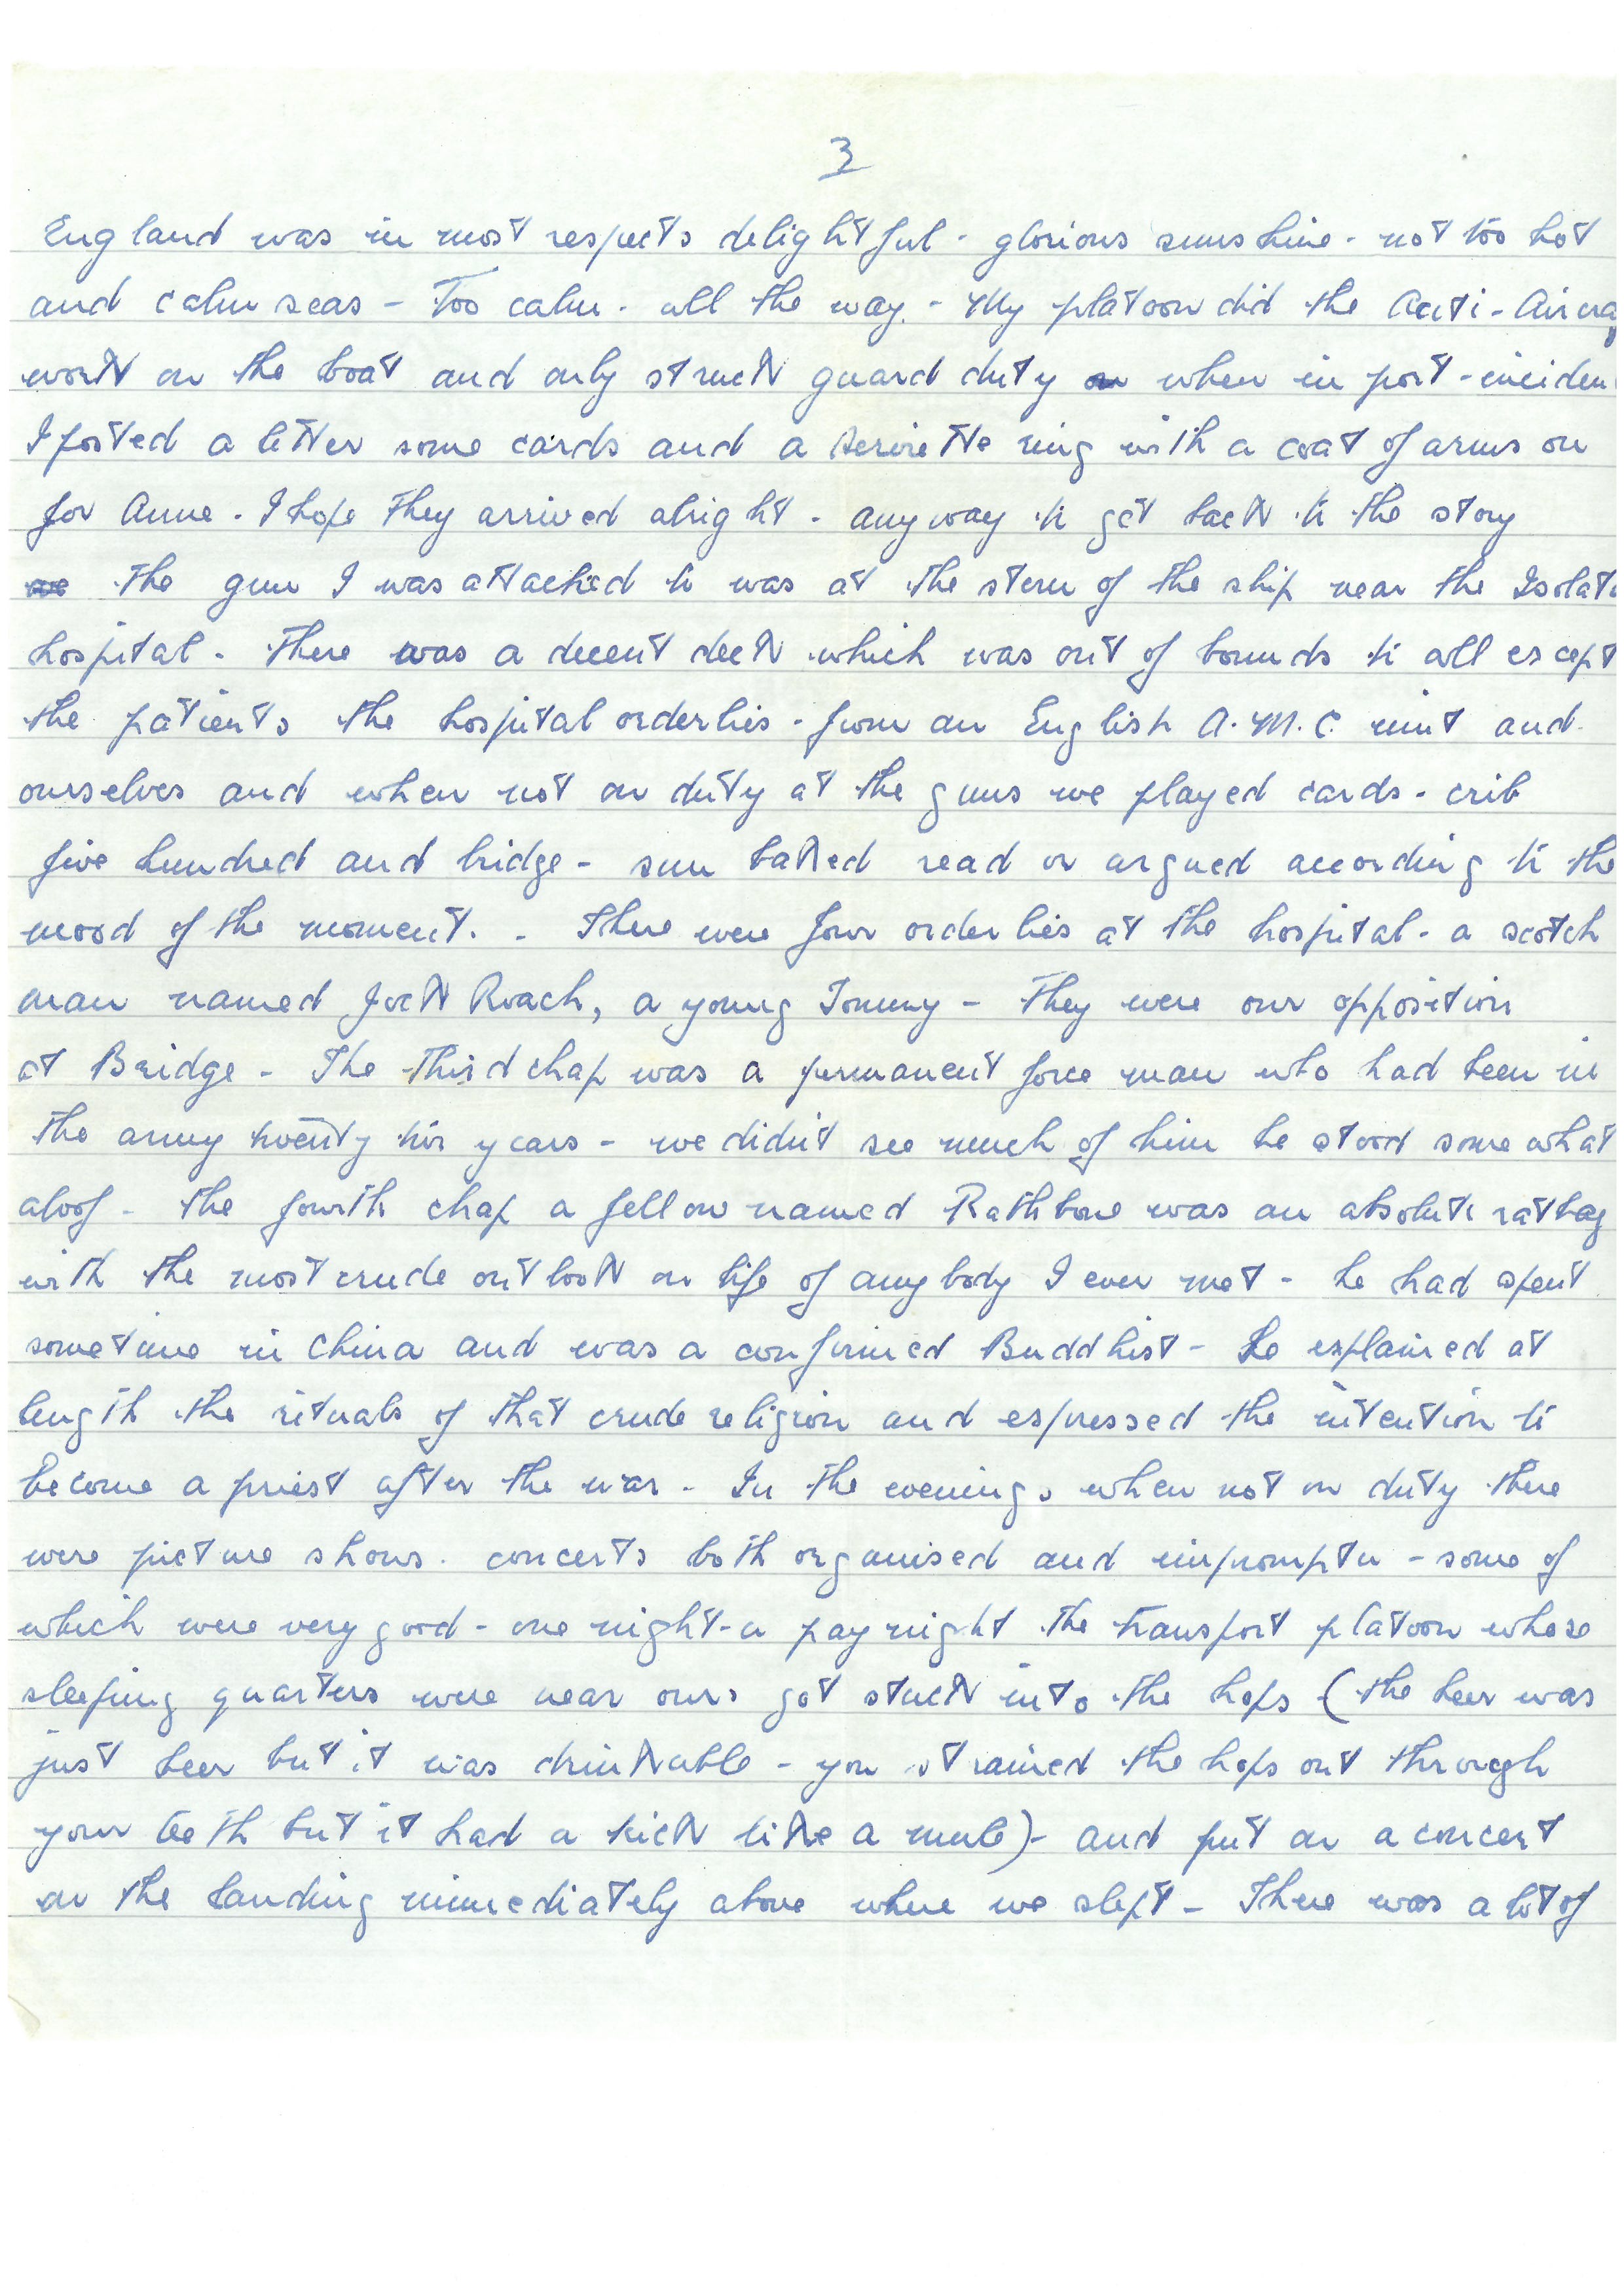 3
England was in most respects delightful - glorious sunshine - not too hot
and calm seas - Too calm - all the way. - My platoon did the Anti-Aircra
work on the boat and only struck guard duty when in port - inciden
I posted a letter some cards and a serviette ring with a coat of arms on
for Anne. I hope they arrived alright - anyway to get back to the story
the gun I was attached to was at the stern of the ship near the Isolati
hospital - There was a decent deck which was out of bounds to all except
the patients the hospital orderlies - from an English A.M.C. unit and
ourselves and when not on duty at the guns we played cards - crib
five hundred and bridge - sun baked read or argued according to the
mood of the moment. - There were four orderlies at the hospital - a scotch
man named Jock Roach, a young Tommy - They were our opposition
at Bridge - The third chap was a permanent force man who had been in
the army twenty two years - we didn't see much of him he stood somewhat
aloof - the fourth chap a fellow named Rathbone was an absolute ratbag
with the most crude outlook on life of anybody I ever met - he had spent
sometime in China and was a confirmed Buddhist - He explained at
length the rituals of that crude religion and expressed the intention to
become a priest after the war - In the evenings when not on duty there
were picture shows. concerts both organised and impromptu - some of
which were very good - one night - a pay night the transport platoon whose
sleeping quarters were near ours got stuck into the hops (the beer was
just beer but it was drinkable - you strained the hops out through
your teeth but it had a kick like a mule) - and put on a concert
on the landing immediately above where we slept - There was a lot of